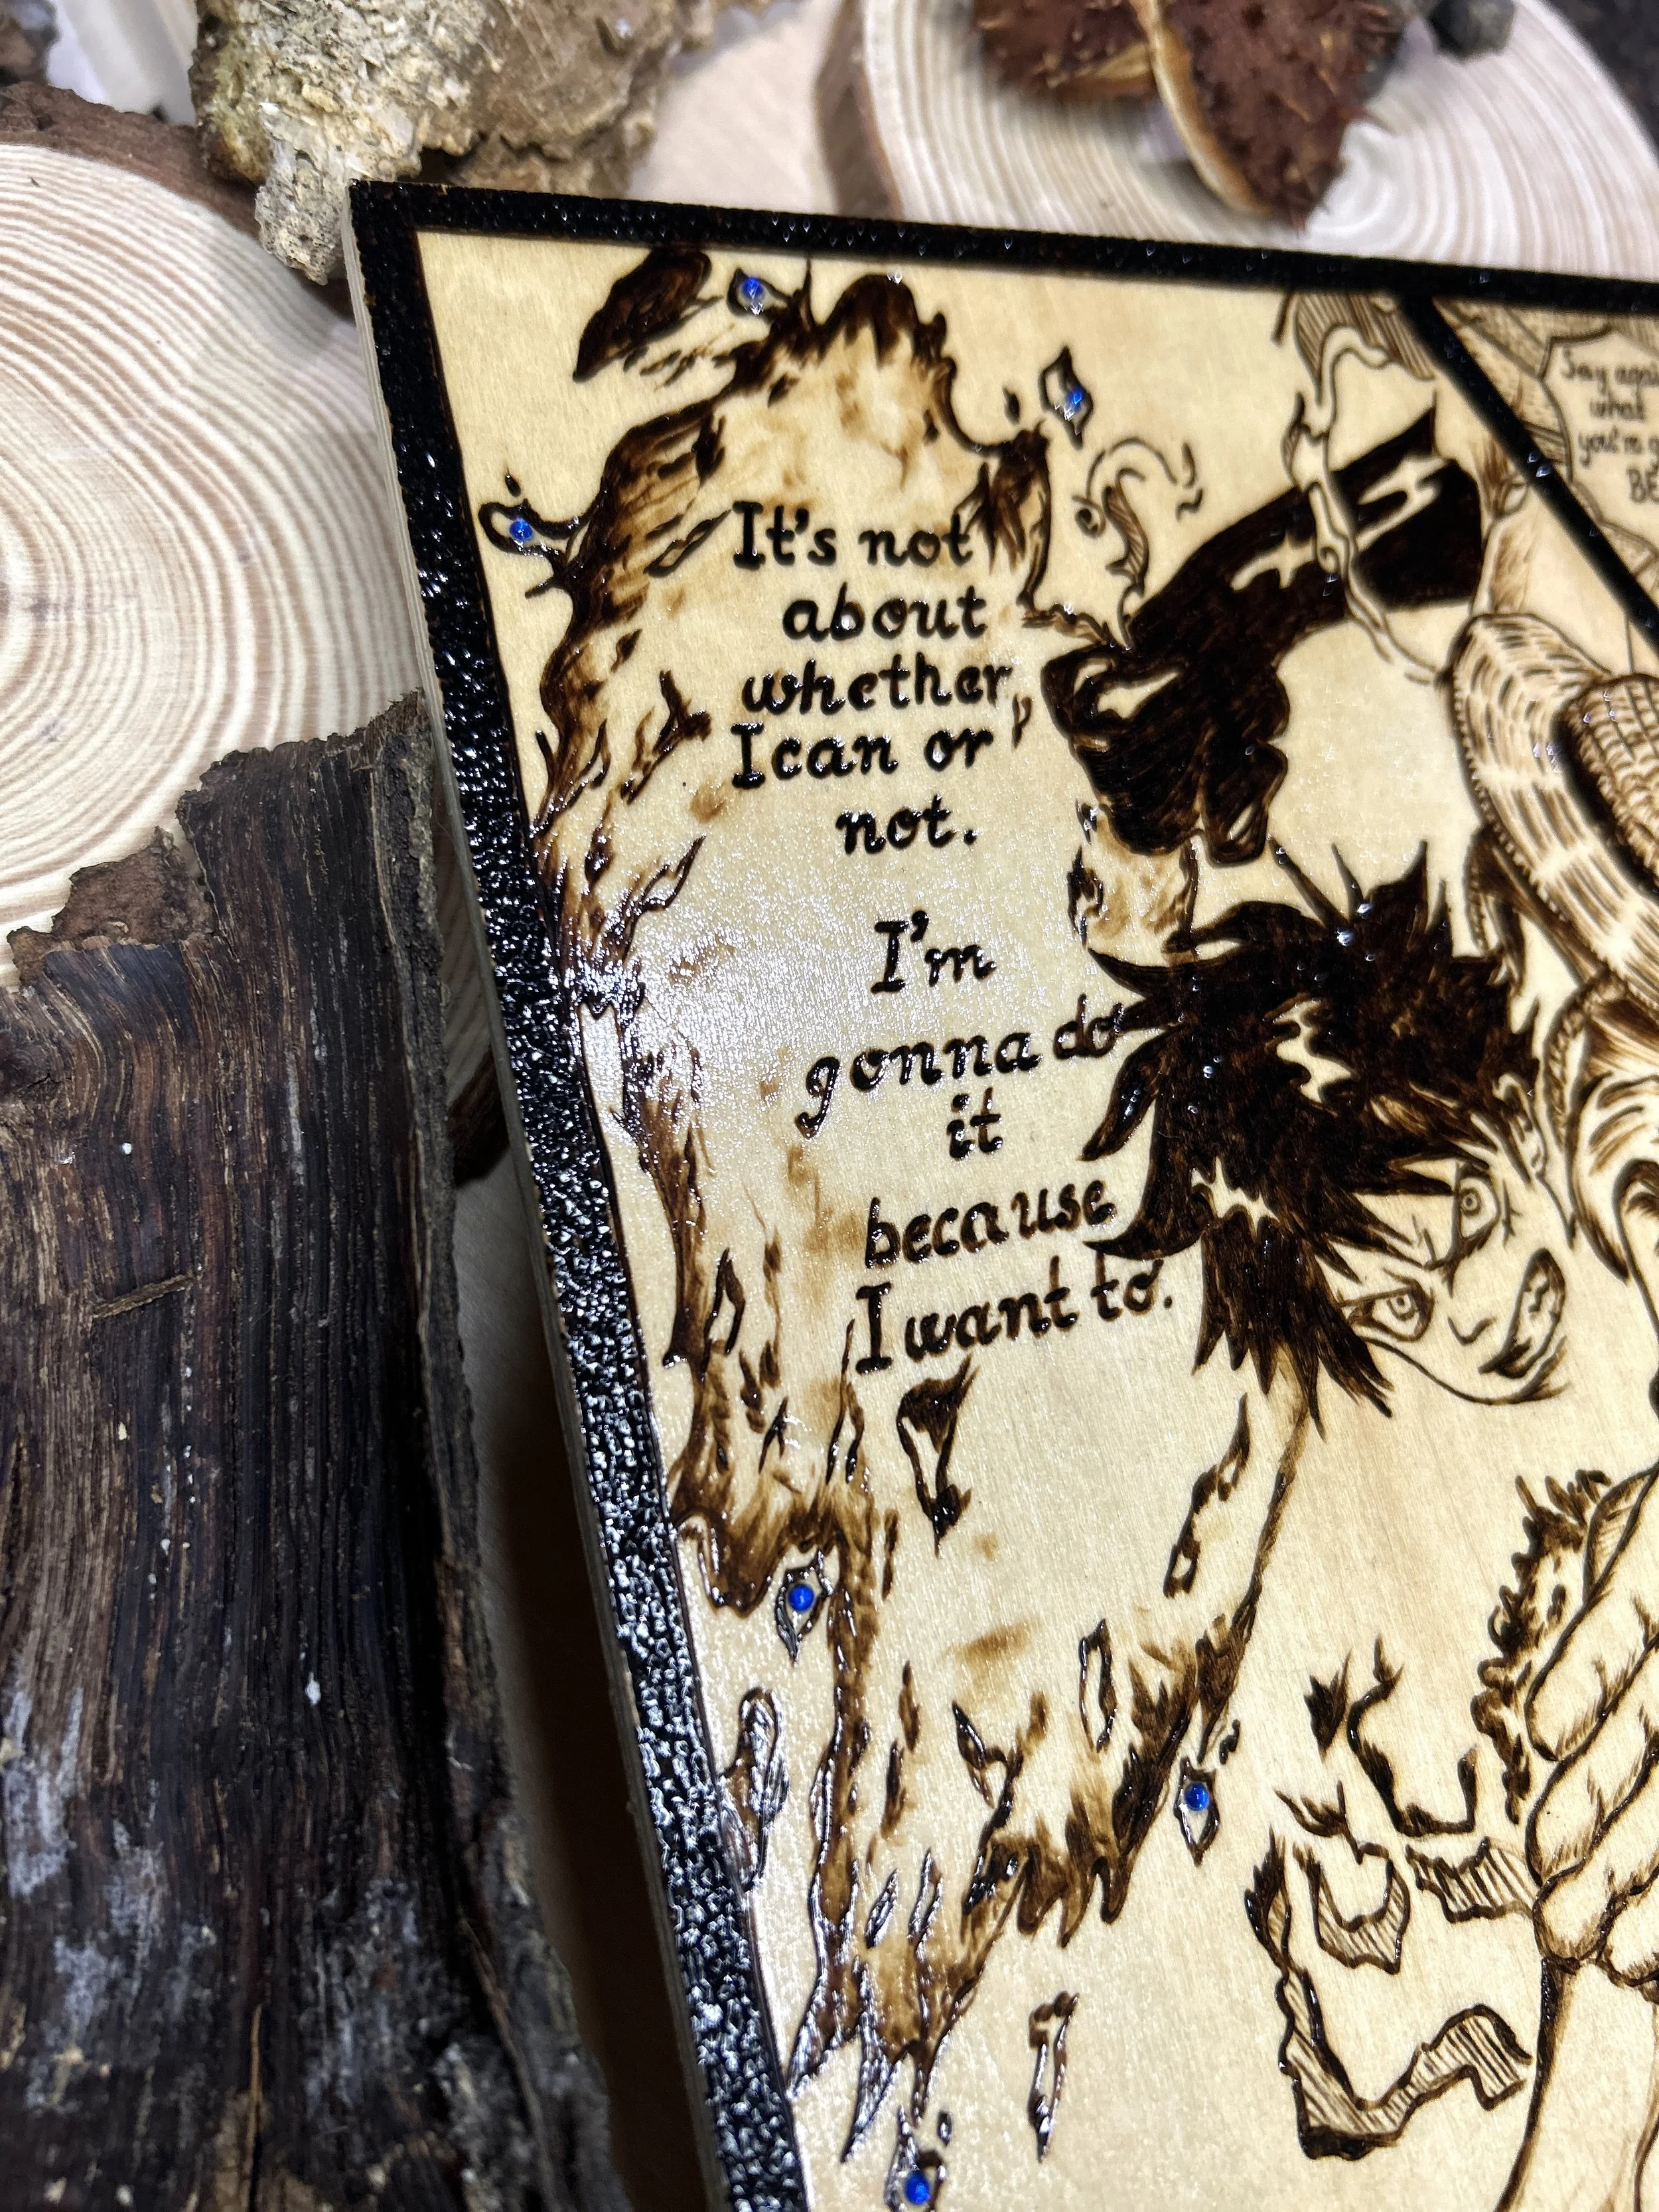 It's not
about
whether
I can or
not.
I'm
gonna do
it
because
I want to.
Say again
what
you're